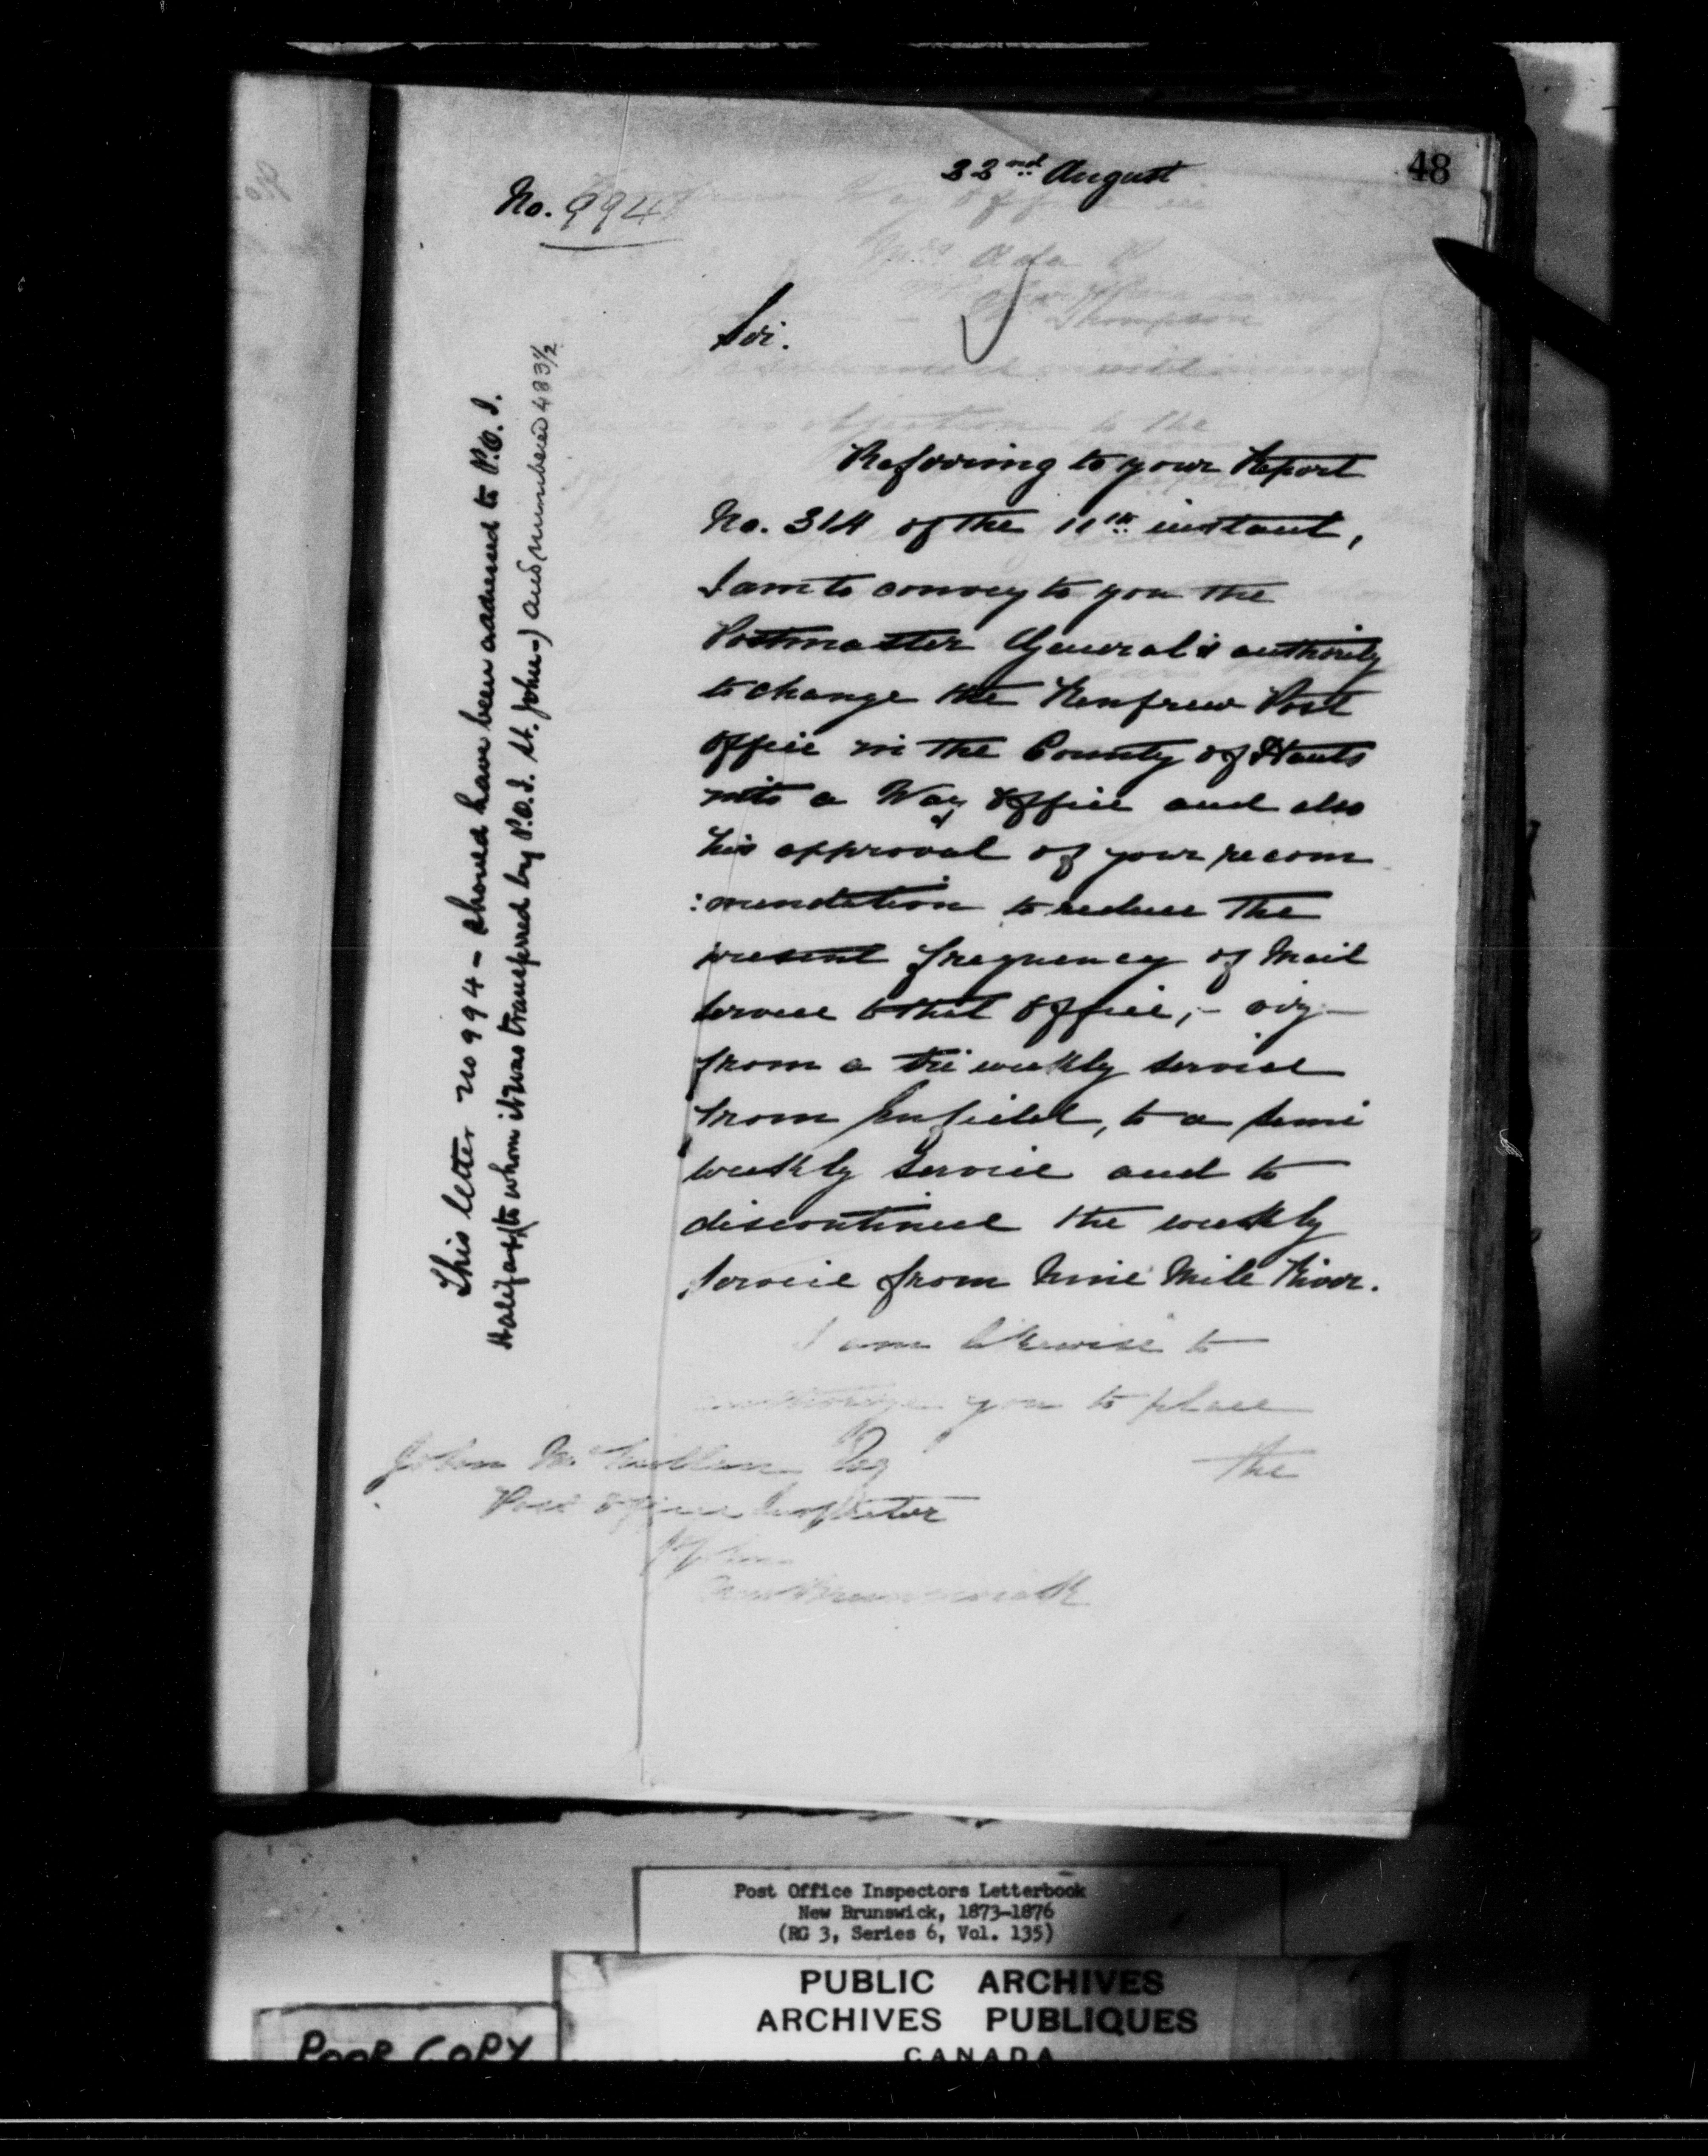 48
22nd August
No. 994
Sir.
Referring to your Report
No. 314 of the 11th instant,
I am to convey to you the
Postmaster General's authority
to change the Renfrew Post
Office in the County of Hants
into a Way Office and also
his approval of your recom
:mendation to reduce the
present frequency of Mail
service to that Office, - viz -
from a tri weekly service
from Enfield, to a semi
weekly service and to
discontinue the weekly
service from Nine Mile River.
I am likewise to
authorize you to place
the
John McMillan Esq
Post Office Inspector
St John
New Brunswick
This letter no 994 - should have been addressed to P.O.I.
Halifax (to whom it was transferred by P.O.I. St. John -) and numbered 483 1/2
Post Office Inspectors Letterbook
New Brunswick, 1873-1876
(RG 3, Series 6, Vol. 135)
PUBLIC ARCHIVES
ARCHIVES PUBLIQUES
CANADA
POOR COPY